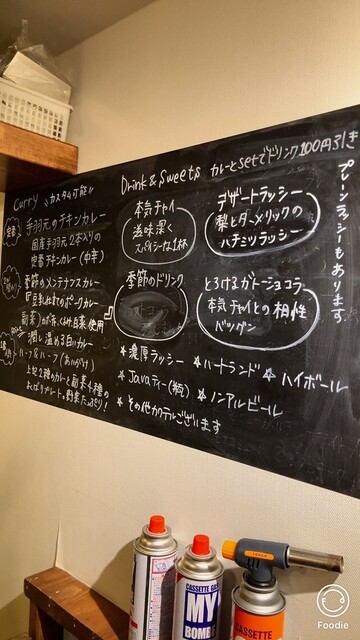 Curry 《カスタム可能》
定番
手羽元のチキンカレー
国産手羽元2本入りの
定番チキンカレー(中辛)
季節のメンテナンスカレー
『豆乳ポークカレー
潤し温める白いカレー
ハーフ&ハーフ(あいがけ)
上記2種のカレーと副菜4種の
Drink & Sweets カレーとsetでドリンク100円引き
本気チャイ
滋味深く
スパイシーな1杯
デザートラッシー
梨とターメリックの
ハチミツラッシー
季節のドリンク
とろけるガトーショコラ
本気チャイとの相性
バツグン
プレーンラッシーもあります
★ 濃厚ラッシー ☆ ハートランド ☆ ハイボール
★ Javaティー(糖) ☆ ノンアルビール
★ その他カクテルございます
CASSETTE GAS
MY
BOMBE
CASSETTE
Foodie